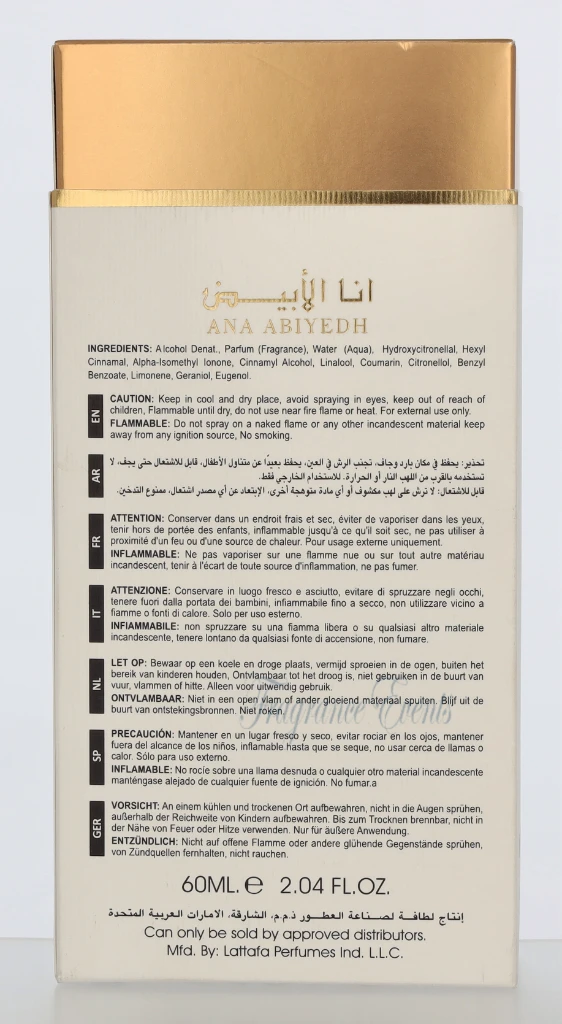 انا الأبيض
ANA ABIYEDH
INGREDIENTS: Alcohol Denat., Parfum (Fragrance), Water (Aqua), Hydroxycitronellal, Hexyl
Cinnamal, Alpha-Isomethyl Ionone, Cinnamyl Alcohol, Linalool, Coumarin, Citronellol, Benzyl
Benzoate, Limonene, Geraniol, Eugenol.
EN
CAUTION: Keep in cool and dry place, avoid spraying in eyes, keep out of reach of
children, Flammable until dry, do not use near fire flame or heat. For external use only.
FLAMMABLE: Do not spray on a naked flame or any other incandescent material keep
away from any ignition source, No smoking.
AR
تحذير: يحفظ في مكان بارد وجاف، تجنب الرش في العين، يحفظ بعيداً عن متناول الأطفال، قابل للاشتعال حتى يجف، لا
تستخدمه بالقرب من اللهب النار أو الحرارة. للاستخدام الخارجي فقط.
قابل للاشتعال: لا ترش على لهب مكشوف أو أي مادة متوهجة أخرى، الإبتعاد عن أي مصدر اشتعال، ممنوع التدخين.
FR
ATTENTION: Conserver dans un endroit frais et sec, éviter de vaporiser dans les yeux,
tenir hors de portée des enfants, inflammable jusqu'à ce qu'il soit sec, ne pas utiliser à
proximité d'un feu ou d'une source de chaleur. Pour usage externe uniquement.
INFLAMMABLE: Ne pas vaporiser sur une flamme nue ou sur tout autre matériau
incandescent, tenir à l'écart de toute source d'inflammation, ne pas fumer.
IT
ATTENZIONE: Conservare in luogo fresco e asciutto, evitare di spruzzare negli occhi,
tenere fuori dalla portata dei bambini, infiammabile fino a secco, non utilizzare vicino a
fiamme o fonti di calore. Solo per uso esterno.
INFIAMMABILE: non spruzzare su una fiamma libera o su qualsiasi altro materiale
incandescente, tenere lontano da qualsiasi fonte di accensione, non fumare.
NL
LET OP: Bewaar op een koele en droge plaats, vermijd sproeien in de ogen, buiten het
bereik van kinderen houden, Ontvlambaar tot het droog is, niet gebruiken in de buurt van
vuur, vlammen of hitte. Alleen voor uitwendig gebruik.
ONTVLAMBAAR: Niet in een open vlam of ander gloeiend materiaal spuiten. Blijf uit de
buurt van ontstekingsbronnen. Niet roken.
Fragrance Events
SP
PRECAUCIÓN: Mantener en un lugar fresco y seco, evitar rociar en los ojos, mantener
fuera del alcance de los niños, inflamable hasta que se seque, no usar cerca de llamas o
calor. Sólo para uso externo.
INFLAMABLE: No rocíe sobre una llama desnuda o cualquier otro material incandescente
manténgase alejado de cualquier fuente de ignición. No fumar.a
GER
VORSICHT: An einem kühlen und trockenen Ort aufbewahren, nicht in die Augen sprühen,
außerhalb der Reichweite von Kindern aufbewahren. Bis zum Trocknen brennbar, nicht in
der Nähe von Feuer oder Hitze verwenden. Nur für äußere Anwendung.
ENTZÜNDLICH: Nicht auf offene Flamme oder andere glühende Gegenstände sprühen,
von Zündquellen fernhalten, nicht rauchen.
60ML. e 2.04 FL.OZ.
إنتاج لطافة لصناعة العطور ذ.م.م، الشارقة، الامارات العربية المتحدة
Can only be sold by approved distributors.
Mfd. By: Lattafa Perfumes Ind. L.L.C.